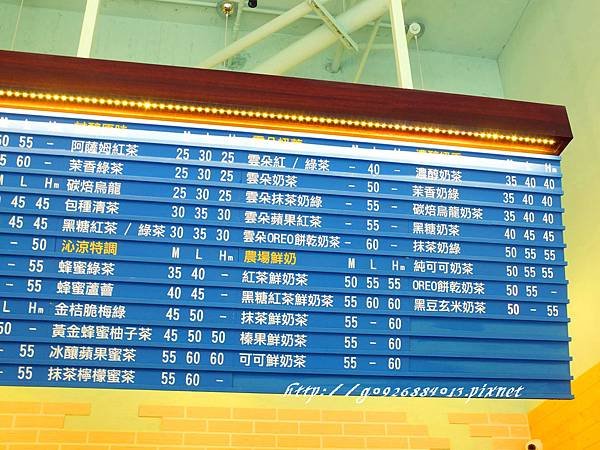 M L Hm
50 55 - 阿薩姆紅茶 25 30 25 雲朵紅 / 綠茶 - 40 - 濃醇奶茶 35 40 40
55 60 - 茉香綠茶 25 30 25 雲朵奶茶 - 50 - 茉香奶綠 35 40 40
M L Hm 碳焙烏龍 25 30 25 雲朵抹茶奶綠 - 55 - 碳焙烏龍奶茶 35 40 40
45 45 包種清茶 30 35 30 雲朵蘋果紅茶 - 55 - 黑糖奶茶 40 45 45
45 45 黑糖紅茶 / 綠茶 30 35 30 雲朵OREO餅乾奶茶 - 60 - 抹茶奶綠 50 50 50
- 50 沁涼特調 M L Hm 農場鮮奶 M L Hm 純可可奶茶 50 55 55
- 55 蜂蜜綠茶 35 40 - 紅茶鮮奶茶 50 55 55 OREO餅乾奶茶 50 55 -
- 55 蜂蜜蘆薈 40 45 - 黑糖紅茶鮮奶茶 55 60 60 黑豆玄米奶茶 50 - 55
L Hm 金桔脆梅綠 45 50 - 抹茶鮮奶茶 55 - 60
50 - 黃金蜂蜜柚子茶 45 50 50 榛果鮮奶茶 55 - 60
- 55 冰釀蘋果蜜茶 55 60 60 可可鮮奶茶 55 - 60
- 55 抹茶檸檬蜜茶 55 60 -
http://go926884013.pixnet